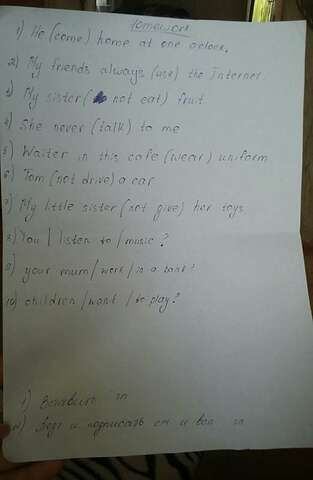 Homework
1) He (come) home at one o'clock.
2) My friends always (use) the Internet
3) My sister (not eat) fruit
4) She never (talk) to me
5) Waiter in this cafe (wear) uniform
6) Tom (not drive) a car
7) My little sister (not give) her toys
8) You / listen to / music?
9) your mum / work / in a bank?
10) children / want / to play?
1)
2) и подписать от и воп